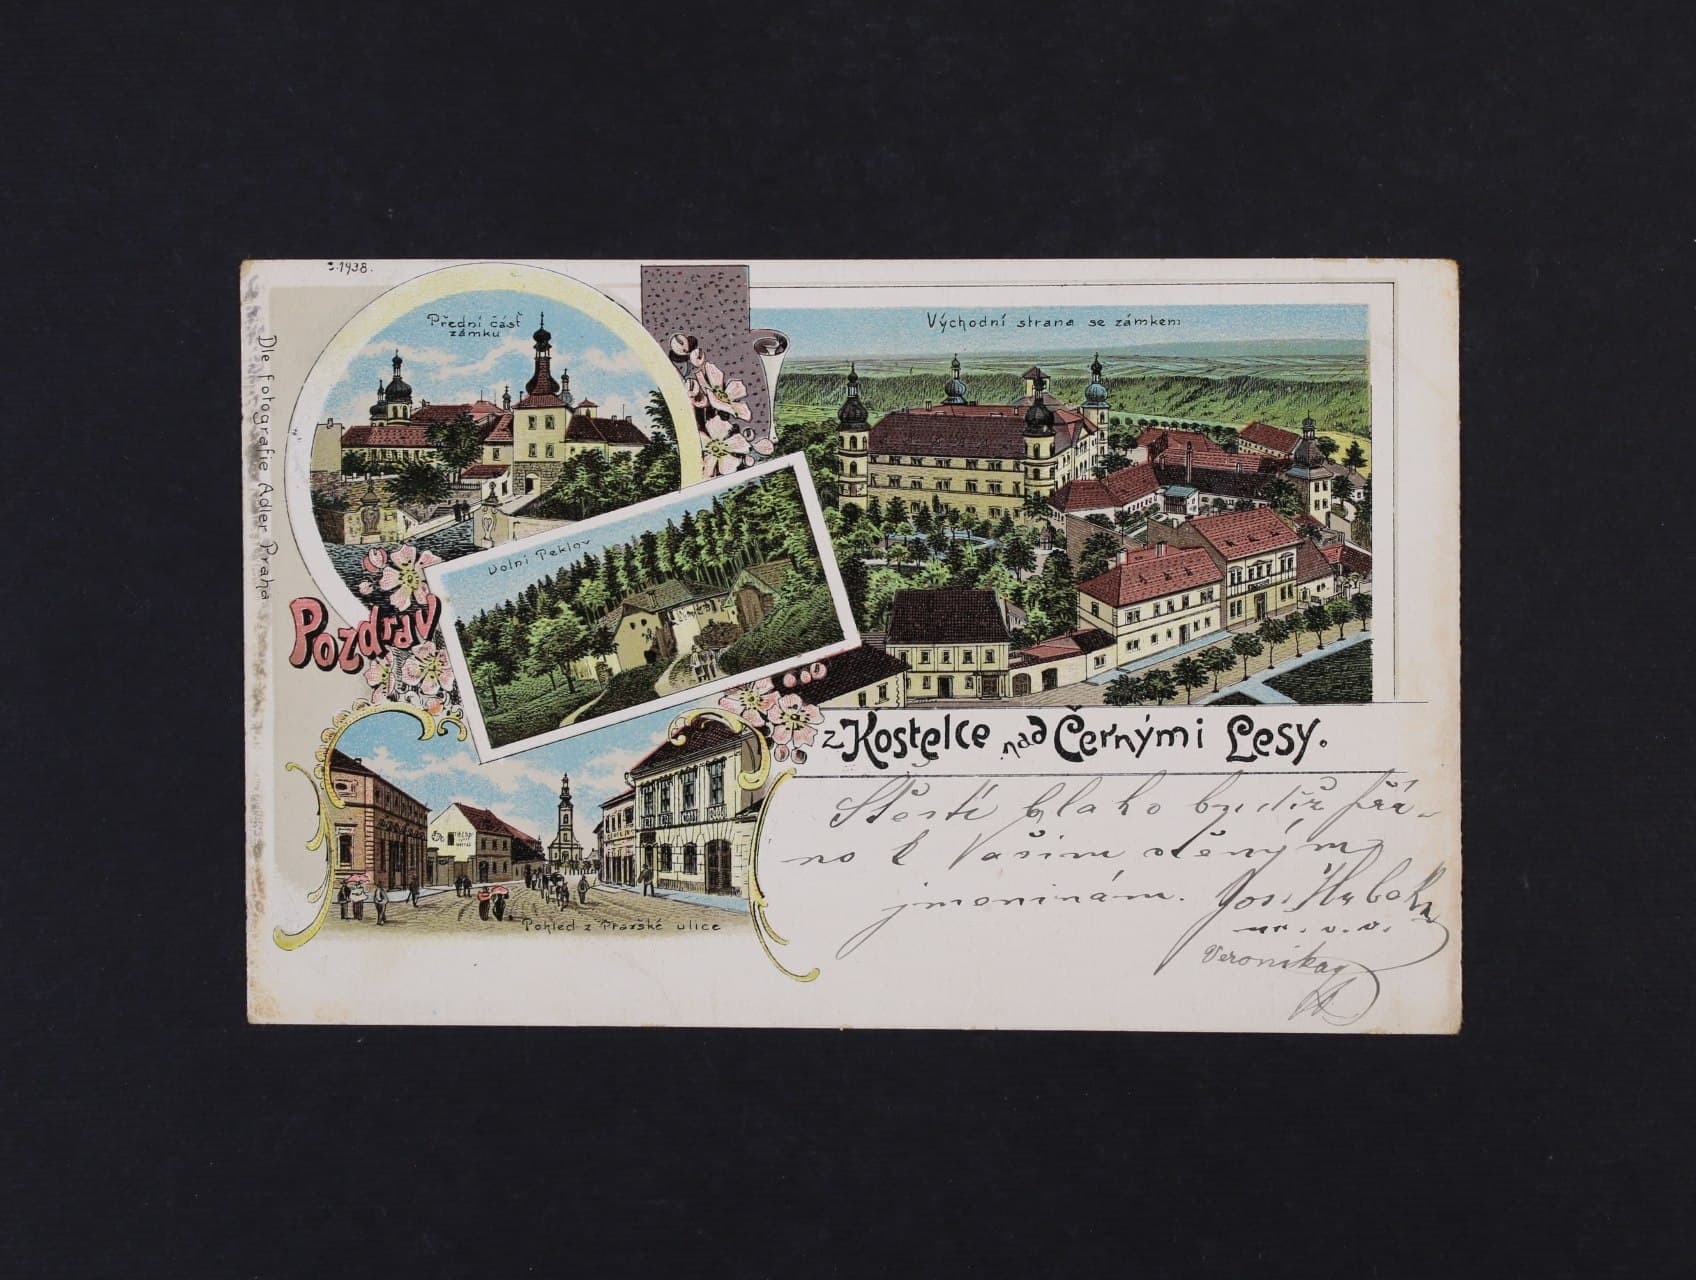 S.1938.
Dle fotografie Adler Praha
Přední část
zámku
Východní strana se zámkem
Dolní Peklov
Pozdrav
z Kostelce nad Černými Lesy.
Pohled z Pražské ulice
Štěstí blaho budiž přá-
no k Vašim
jmeninám. Jos.
Veronika